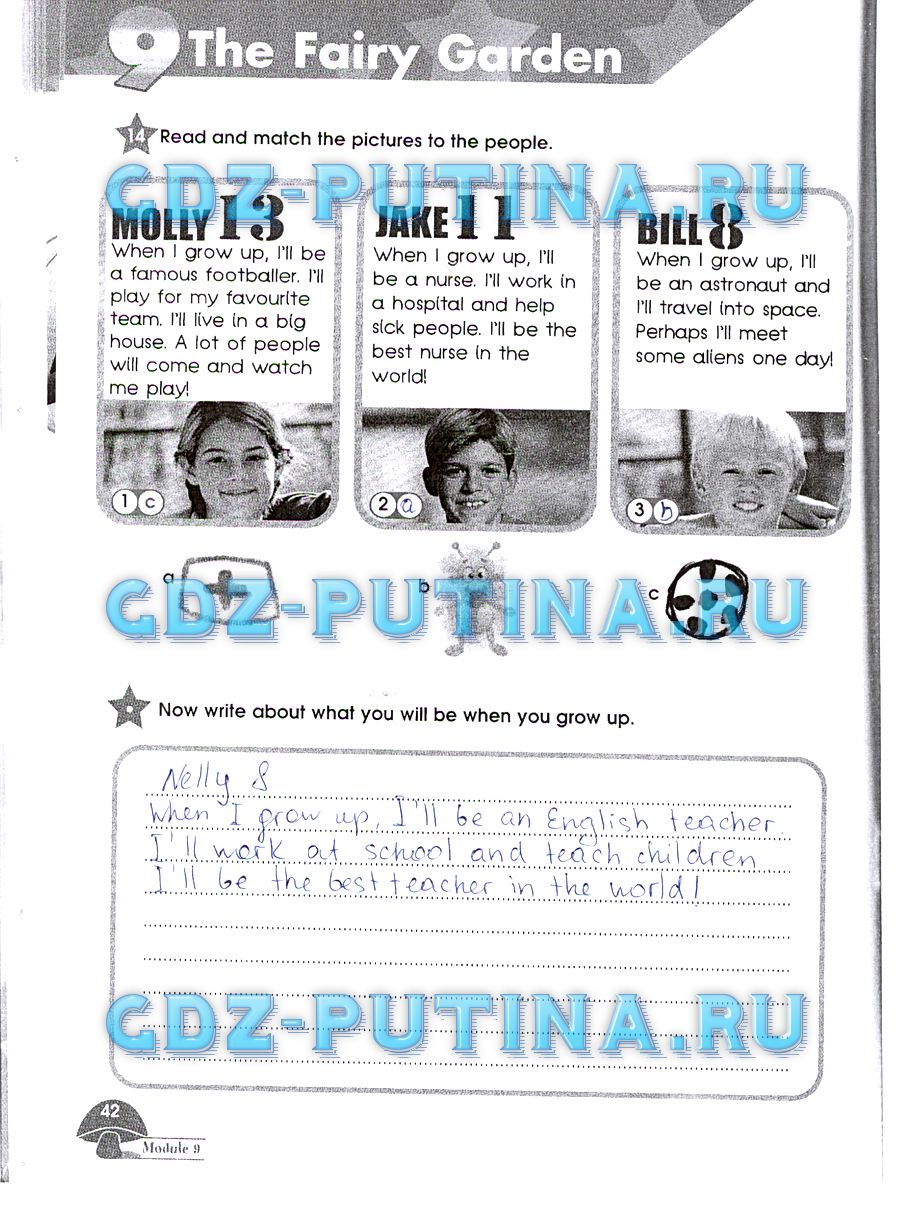 9 The Fairy Garden
14 Read and match the pictures to the people.
GDZ-PUTINA.RU
MOLLY 13
When I grow up, I'll be
a famous footballer. I'll
play for my favourite
team. I'll live in a big
house. A lot of people
will come and watch
me play!
1 c
JAKE 11
When I grow up, I'll
be a nurse. I'll work in
a hospital and help
sick people. I'll be the
best nurse in the
world!
2 a
BILL 8
When I grow up, I'll
be an astronaut and
I'll travel into space.
Perhaps I'll meet
some aliens one day!
3 b
a
b
c
GDZ-PUTINA.RU
Now write about what you will be when you grow up.
Nelly 8
When I grow up, I'll be an English teacher.
I'll work at school and teach children
I'll be the best teacher in the world!
GDZ-PUTINA.RU
42
Module 9